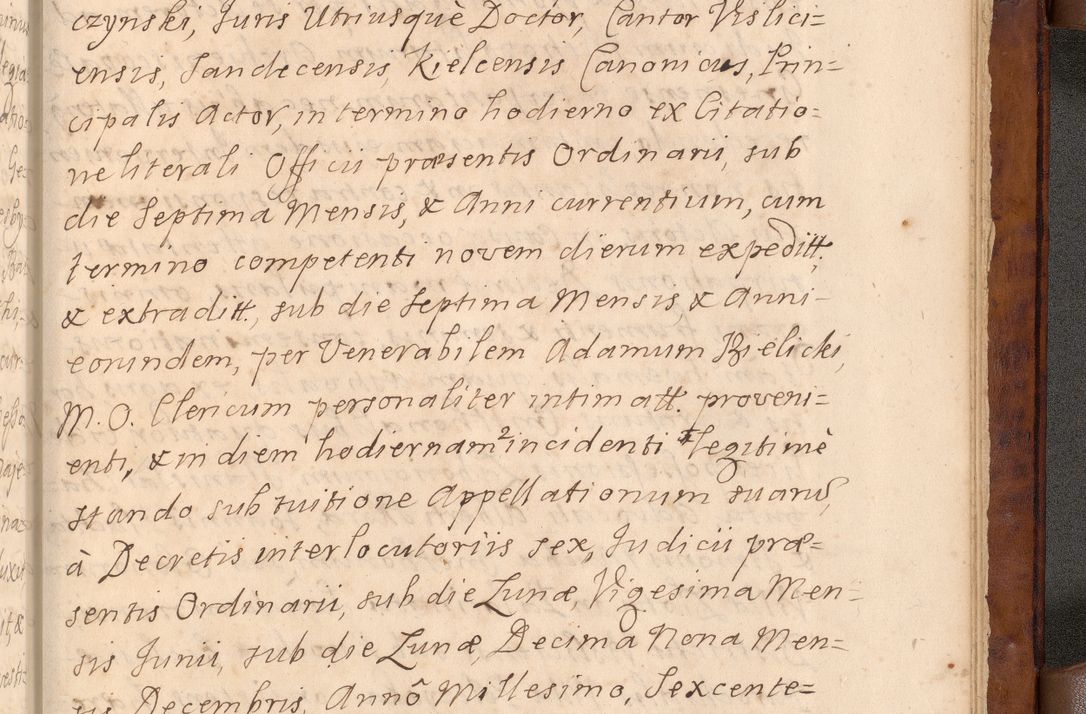 czynski, Juris Utriusquè Doctor, Cantor Vislici=
ensis, Sandecensis, Kielcensis Canonicus, Prin=
cipalis Actor, in termino hodierno ex Citatio=
ne literali Officii præsentis Ordinarii, sub
die Septima Mensis, & Anni currentium, cum
termino competenti novem dierum expeditt.
& extraditt., sub die Septima Mensis, & Anni
eorundem, per Venerabilem Adamum Bielicki,
M. O. Clericum personaliter intimatt. proveni=
enti, & in diem hodiernam incidenti legitimè
stando sub tuitione Appellationum suarũ,
à Decretis interlocutoriis sex, Judicii præ=
sentis Ordinarii, sub die Lunæ, Vigesima Men=
sis Junii, sub die Lunæ, Decima Nona Men=
sis Decembris, Annô Millesimo, Sexcente=